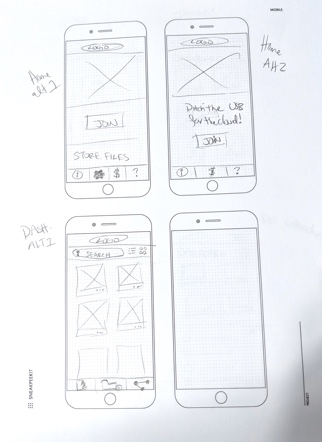 MOBILE
Home
alt 1
LOGO
JOIN
STORE FILES
! $ ?
Home
Alt 2
LOGO
Ditch the USB
for the cloud!
JOIN
! $ ?
DASH-
ALT 1
LOGO
SEARCH
SNEAKPEEKIT